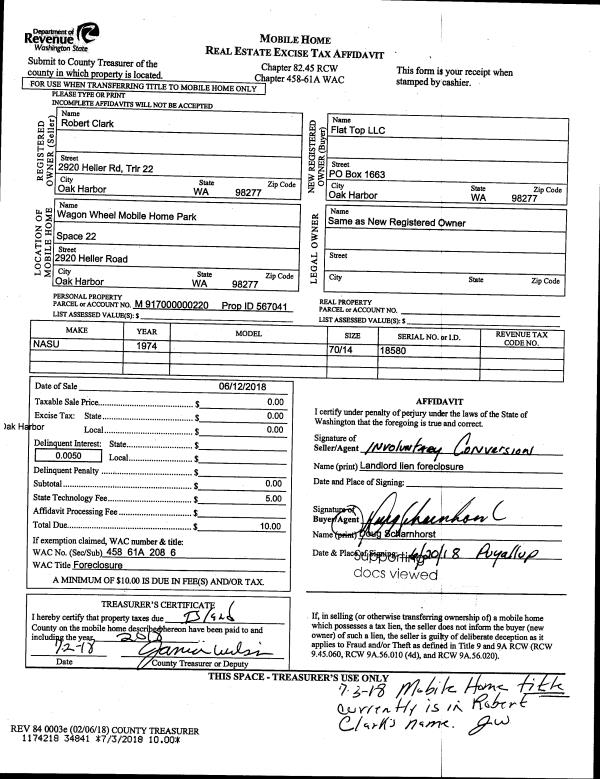 Department of
Revenue
Washington State
MOBILE HOME
REAL ESTATE EXCISE TAX AFFIDAVIT
Submit to County Treasurer of the
county in which property is located.
Chapter 82.45 RCW
Chapter 458-61A WAC
This form is your receipt when
stamped by cashier.
FOR USE WHEN TRANSFERRING TITLE TO MOBILE HOME ONLY
PLEASE TYPE OR PRINT
INCOMPLETE AFFIDAVITS WILL NOT BE ACCEPTED
REGISTERED
OWNER (Seller)
Name
Robert Clark
Street
2920 Heller Rd, Trlr 22
City State Zip Code
Oak Harbor WA 98277
NEW REGISTERED
OWNER (Buyer)
Name
Flat Top LLC
Street
PO Box 1663
City State Zip Code
Oak Harbor WA 98277
LOCATION OF
MOBILE HOME
Name
Wagon Wheel Mobile Home Park
Space 22
Street
2920 Heller Road
City State Zip Code
Oak Harbor WA 98277
LEGAL OWNER
Name
Same as New Registered Owner
Street
City State Zip Code
PERSONAL PROPERTY
PARCEL or ACCOUNT NO. M 917000000220 Prop ID 567041
LIST ASSESSED VALUE(S): $
REAL PROPERTY
PARCEL or ACCOUNT NO.
LIST ASSESSED VALUE(S): $
MAKE YEAR MODEL SIZE SERIAL NO. or I.D. REVENUE TAX CODE NO.
NASU 1974 70/14 18580
Date of Sale 06/12/2018
Taxable Sale Price $ 0.00
Excise Tax: State $ 0.00
Oak Harbor Local $ 0.00
Delinquent Interest: State $
0.0050 Local $
Delinquent Penalty $
Subtotal $ 0.00
State Technology Fee $ 5.00
Affidavit Processing Fee $
Total Due $ 10.00
If exemption claimed, WAC number & title:
WAC No. (Sec/Sub) 458 61A 208 6
WAC Title Foreclosure
A MINIMUM OF $10.00 IS DUE IN FEE(S) AND/OR TAX.
AFFIDAVIT
I certify under penalty of perjury under the laws of the State of
Washington that the foregoing is true and correct.
Signature of
Seller/Agent Involuntary Conversion
Name (print) Landlord lien foreclosure
Date and Place of Signing:
Signature of
Buyer/Agent
Name (print) Doug Scharnhorst
Date & Place of Signing: 6/20/18 Puyallup
Supporting
docs viewed
TREASURER'S CERTIFICATE
I hereby certify that property taxes due Island
County on the mobile home described hereon have been paid to and
including the year 2018
7-2-18
Date County Treasurer or Deputy
If, in selling (or otherwise transferring ownership of) a mobile home
which possesses a tax lien, the seller does not inform the buyer (new
owner) of such a lien, the seller is guilty of deliberate deception as it
applies to Fraud and/or Theft as defined in Title 9 and 9A RCW (RCW
9.45.060, RCW 9A.56.010 (4d), and RCW 9A.56.020).
THIS SPACE - TREASURER'S USE ONLY
7-3-18 Mobile Home title
currently is in Robert
Clark's name. JW
REV 84 0003e (02/06/18) COUNTY TREASURER
1174218 34841 *7/3/2018 10.00*